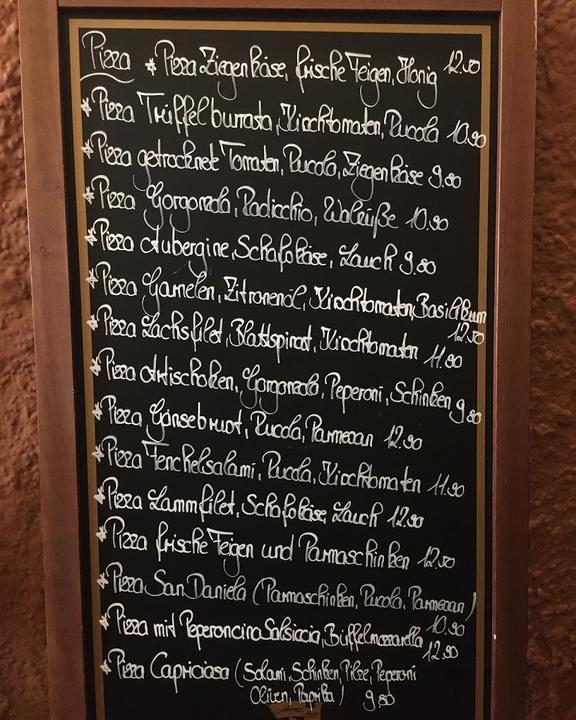 Pizza * Pizza Ziegenkäse, frische Feigen, Honig 12.50
* Pizza Trüffelburrata, Kirschtomaten, Rucola 10.90
* Pizza getrocknete Tomaten, Rucola, Ziegenkäse 9.80
* Pizza Gorgonzola, Radicchio, Walnüße 10.90
* Pizza Aubergine, Schafskäse, Lauch 9.80
* Pizza Garnelen, Zitronenöl, Kirschtomaten, Basilikum
12.50
* Pizza Lachsfilet, Blattspinat, Kirschtomaten 11.90
* Pizza Artischoken, Gorgonzola, Peperoni, Schinken 9.80
* Pizza Gänsebrust, Rucola, Parmesan 12.90
* Pizza Fenchelsalami, Rucola, Kirschtomaten 11.90
* Pizza Lammfilet, Schafskäse, Lauch 12.90
* Pizza frische Feigen und Parmaschinken 12.50
* Pizza San Daniela (Parmaschinken, Rucola, Parmesan)
10.90
* Pizza mit Peperoncino Salsiccia, Büffelmozzarella
12.90
* Pizza Capriciosa (Salami, Schinken, Pilze, Peperoni
Oliven, Paprika) 9.80